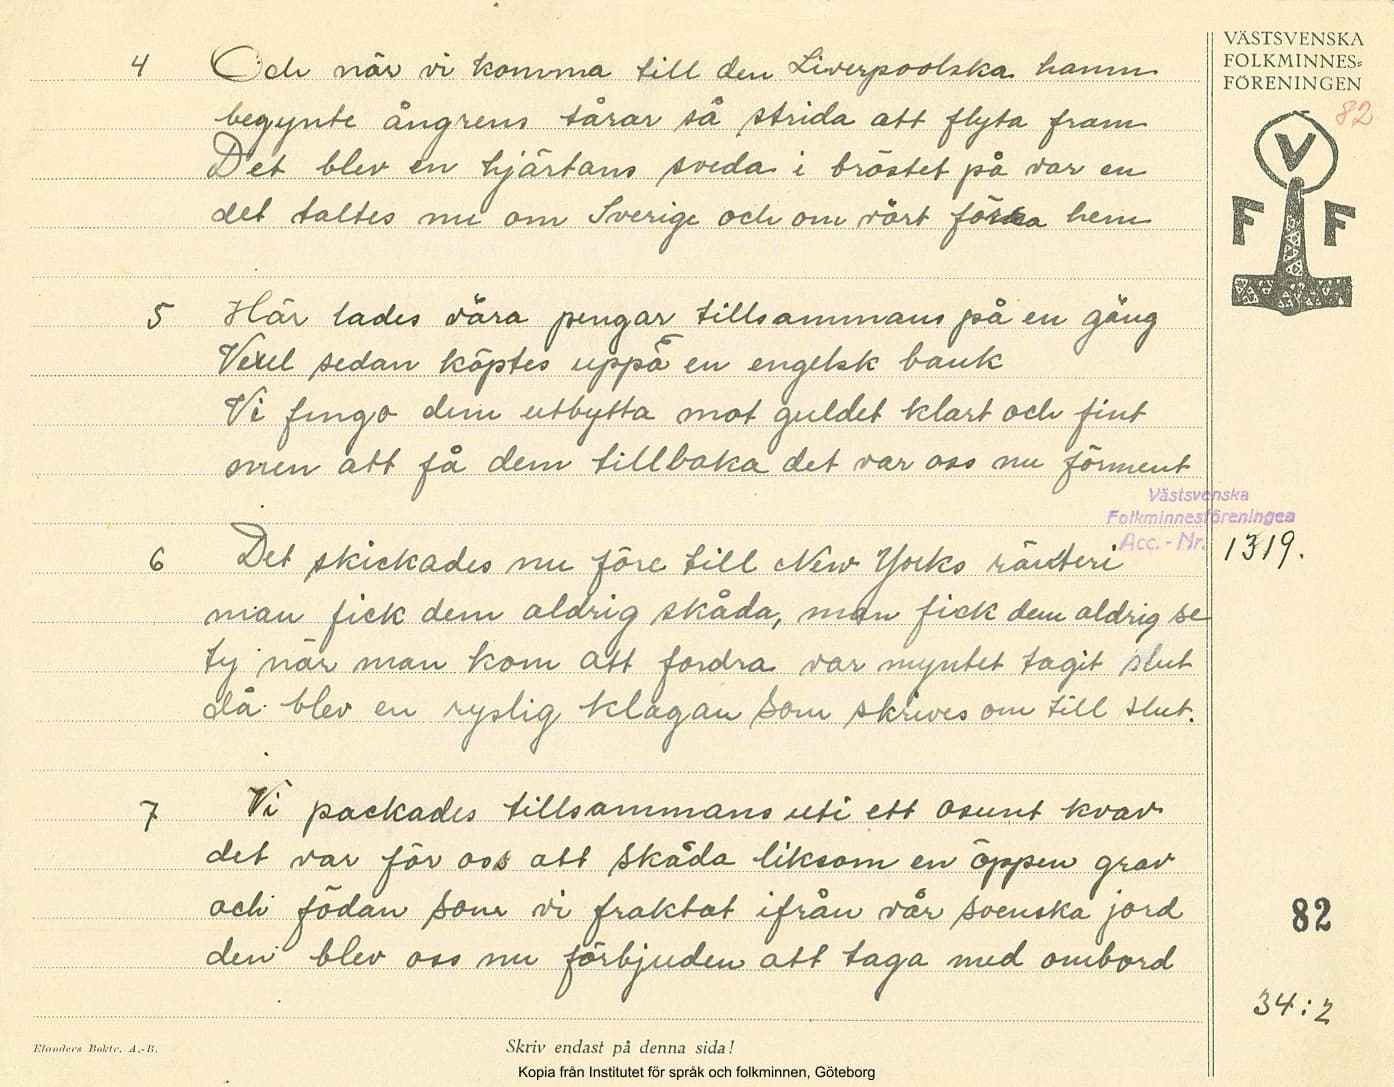 VÄSTSVENSKA
FOLKMINNES=
FÖRENINGEN
82
V
F F
4 Och när vi komma till den Liverpoolska hamn
begynte ångrens tårar så strida att flyta fram
Det blev en hjärtans sveda i bröstet på var en
det taltes nu om Sverige och om vårt förra hem
5 Här lades våra pengar tillsammans på en gång
Vexel sedan köptes uppå en engelsk bank
Vi fingo dem utbytta mot guldet klart och fint
men att få dem tillbaka det var oss nu förment
Västsvenska
Folkminnesföreningen
Acc. - Nr. 1319.
6 Det skickades nu före till New Yorks ränteri
man fick dem aldrig skåda, man fick dem aldrig se
ty när man kom att fordra var myntet tagit slut
då blev en ryslig klagan som skrives om till slut.
7 Vi packades tillsammans uti ett osunt kvav
det var för oss att skåda liksom en öppen grav
och födan som vi fraktat ifrån vår svenska jord
den blev oss nu förbjuden att taga med ombord
82
34:2
Elanders Boktr. A.-B.
Skriv endast på denna sida!
Kopia från Institutet för språk och folkminnen, Göteborg